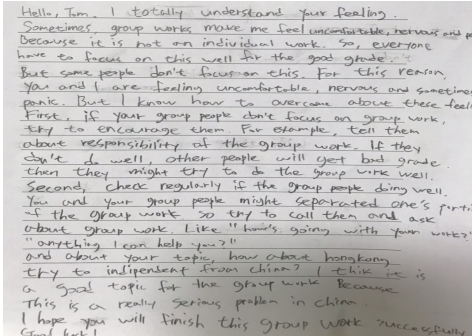 Hello, Tom. I totally understand your feeling.
Sometimes, group works make me feel uncomfortable, nervous and
Because it is not an individual work. So, everyone
have to focus on this well for the good grade.
But some people don't focus on this. For this reason,
you and I are feeling uncomfortable, nervous and sometimes
panic. But I know how to overcome about these
First, if your group people don't focus on group work,
try to encourage them. For example, tell them
about responsibility of the group work. If they
don't do well, other people will get bad grade.
then they might try to do the group work well.
Second, check regularly if the group people doing well.
You and your group people might separated one's
of the group work so try to call them and ask
about group work. Like "how's going with your work?"
"anything I can help you?"
and about your topic, how about hongkong
try to indipendent from china? I thik it is
a good topic for the group work Because
This is a really serious problem in china.
I hope you will finish this group work successfully
Good luck!